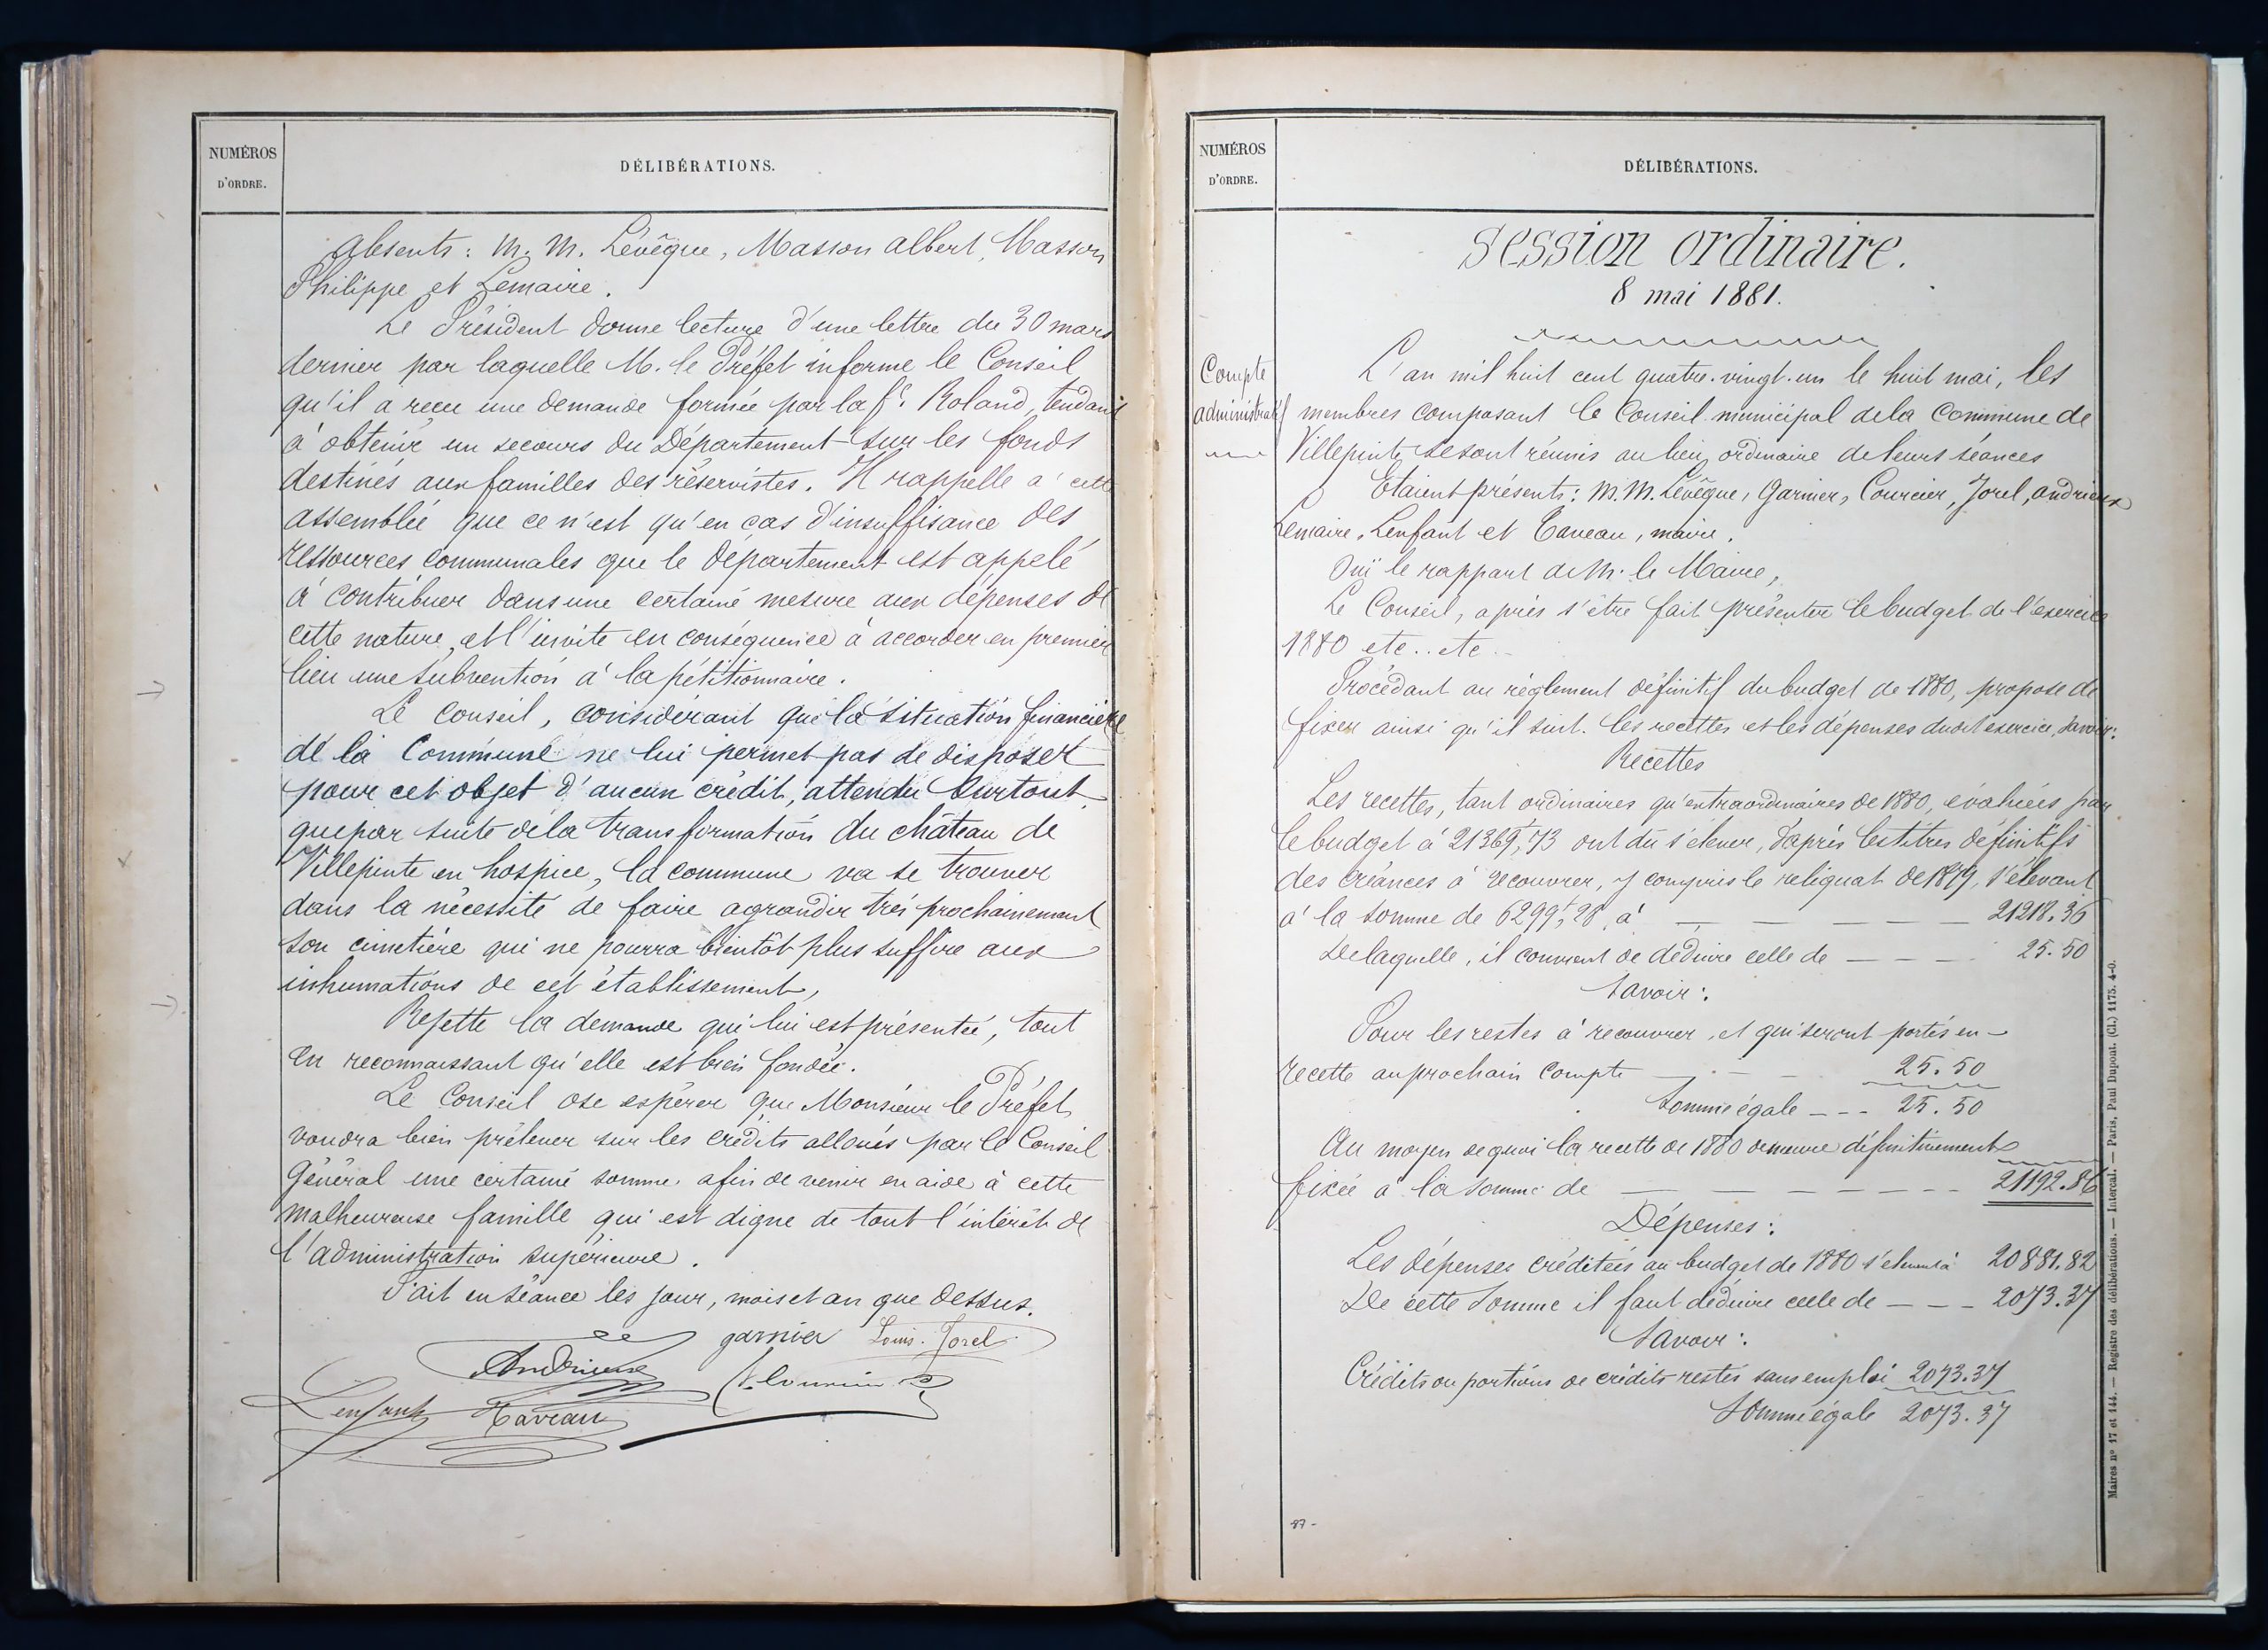 NUMÉROS
D'ORDRE.
DÉLIBÉRATIONS.
Absents : M. M. Lévêque, Masson Albert, Masson
Philippe et Lemaire.
Le Président donne lecture d'une lettre du 30 mars
dernier par laquelle M. le Préfet informe le Conseil
qu'il a reçu une demande formée par la fe. Roland, tendant
à obtenir un secours du Département sur les fonds
destinés aux familles des réservistes. Il rappelle à cette
assemblée que ce n'est qu'en cas d'insuffisance des
ressources communales que le Département est appelé
à contribuer dans une certaine mesure aux dépenses de
cette nature, et l'invite en conséquence à accorder en premier
lieu une subvention à la pétitionnaire.
Le Conseil, considérant que la situation financière
de la Commune ne lui permet pas de disposer
pour cet objet d'aucun crédit, attendu surtout
que par suite de la transformation du château de
Villepinte en hospice, la commune va se trouver
dans la nécessité de faire agrandir très prochainement
son cimetière qui ne pourra bientôt plus suffire aux
inhumations de cet établissement,
Rejette la demande qui lui est présentée, tout
en reconnaissant qu'elle est bien fondée.
Le Conseil ose espérer que Monsieur le Préfet
voudra bien prélever sur les crédits alloués par le Conseil
Général une certaine somme afin de venir en aide à cette
malheureuse famille qui est digne de tout l'intérêt de
l'administration supérieure.
Fait en séance les jour, mois et an que dessus.
garnier Louis Jorel
Andrieux
Lenfant Taveau
NUMÉROS
D'ORDRE.
DÉLIBÉRATIONS.
Session ordinaire.
8 mai 1881.
Compte
administratif
L'an mil huit cent quatre-vingt-un le huit mai, les
membres composant le Conseil municipal de la Commune de
Villepinte se sont réunis au lieu ordinaire de leurs séances
Etaient présents : M. M. Lévêque, Garnier, Courcier, Jorel, Andrieux
Lemaire, Lenfant et Taveau, maire.
Ouï le rapport de M. le Maire,
Le Conseil, après s'être fait présenter le budget de l'exercice
1880 etc.. etc..
Procédant au règlement définitif du budget de 1880, propose de
fixer ainsi qu'il suit. les recettes et les dépenses dudit exercice, savoir :
Recettes
Les recettes, tant ordinaires qu'extraordinaires de 1880, évaluées par
le budget à 21369f,73 ont dû s'élever, d'après les titres définitifs
des créances à recouvrer, y compris le reliquat de 1879, s'élevant
à la somme de 6299f,28, à — — — — — 21218.36
De laquelle, il convient de déduire celle de — — — 25.50
Savoir :
Pour les restes à recouvrer, et qui seront portés en
recette au prochain compte — — — 25.50
Somme égale --- 25.50
Au moyen de quoi la recette de 1880 demeure définitivement
fixée à la somme de — — — — — — 21192.86
Dépenses :
Les dépenses créditées au budget de 1880 s'élèvent à 20881.82
De cette somme il faut déduire celle de — — — 2073.37
Savoir :
Crédits ou portions de crédits restés sans emploi 2073.37
Somme égale 2073.37
-87-
Maires nos 17 et 144. — Registre des délibérations. — Intercal. — Paris, Paul Dupont. (Cl.) 1175. 4-0.